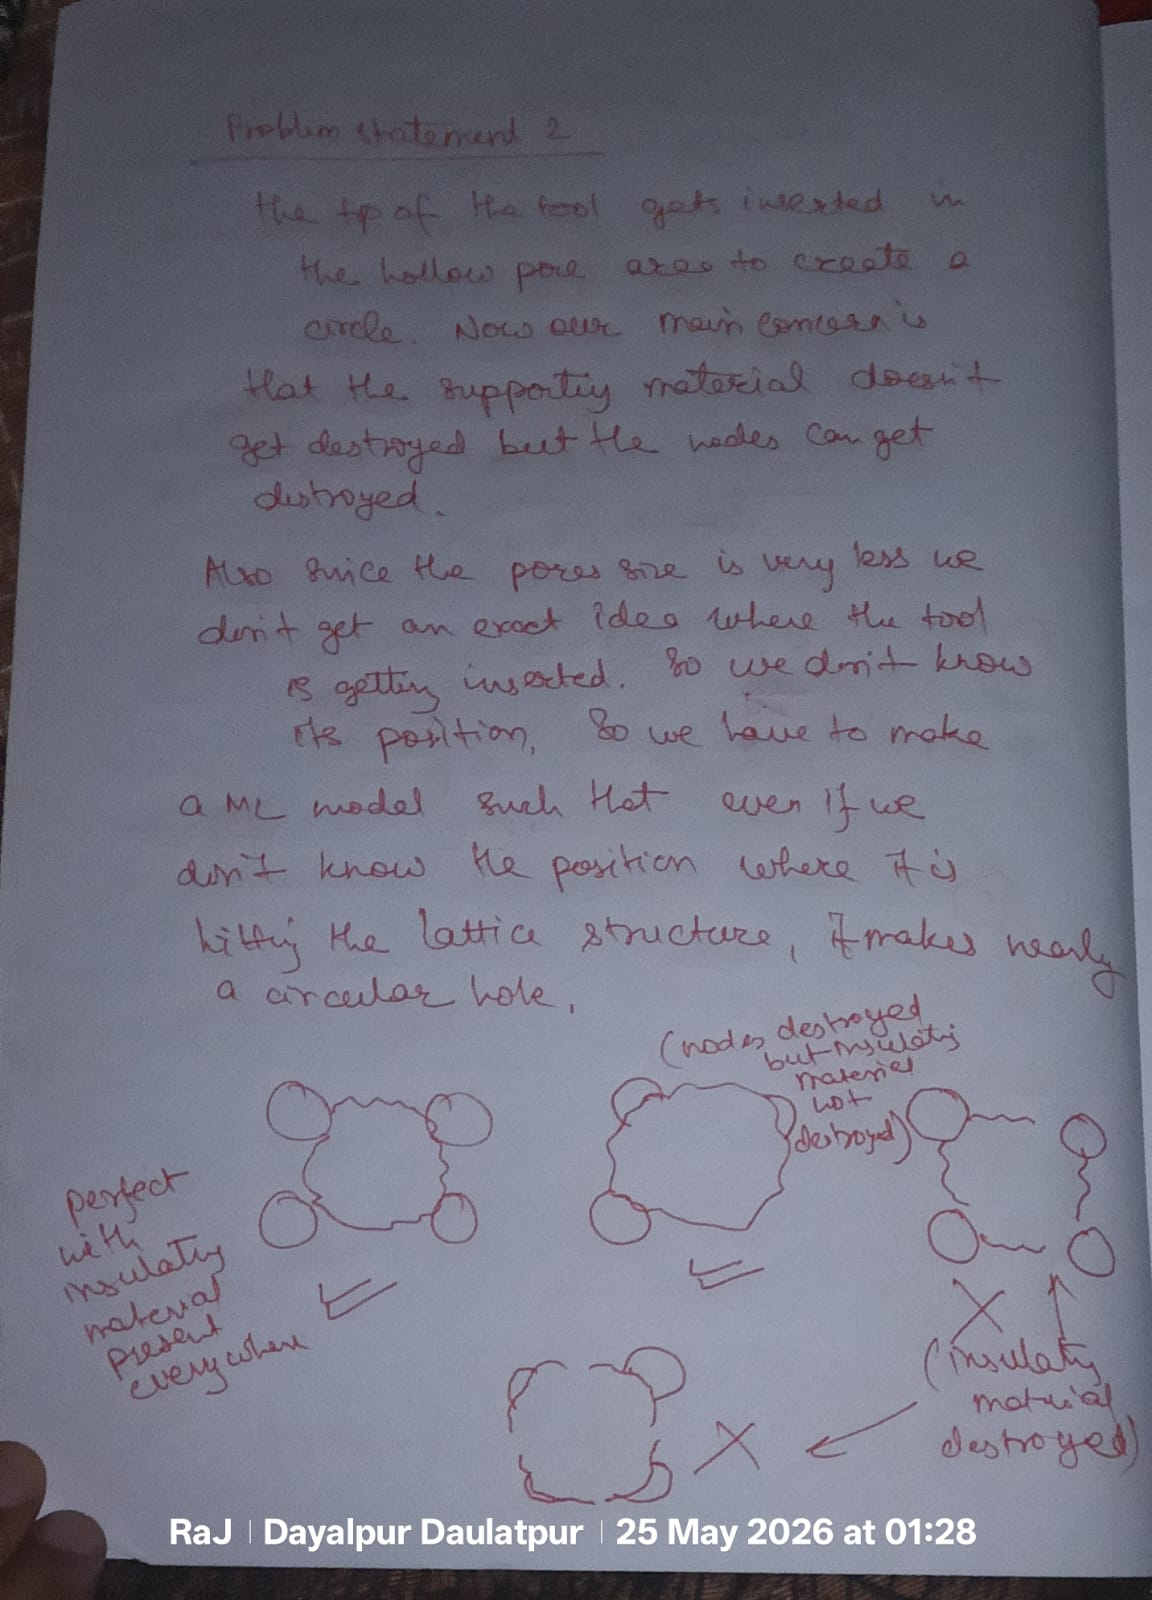 Problem statement 2
the tip of the tool gets inserted in
the hollow pore area to create a
circle. Now our main concern is
that the supporting material doesn't
get destroyed but the nodes can get
destroyed.
Also since the pores size is very less we
don't get an exact idea where the tool
is getting inserted. So we don't know
its position, So we have to make
a ML model such that even if we
don't know the position where it is
hitting the lattice structure, it makes nearly
a circular hole,
(nodes destroyed
but insulating
material
not
destroyed)
perfect
with
insulating
material
present
everywhere
(insulating
material
destroyed)
RaJ | Dayalpur Daulatpur | 25 May 2026 at 01:28